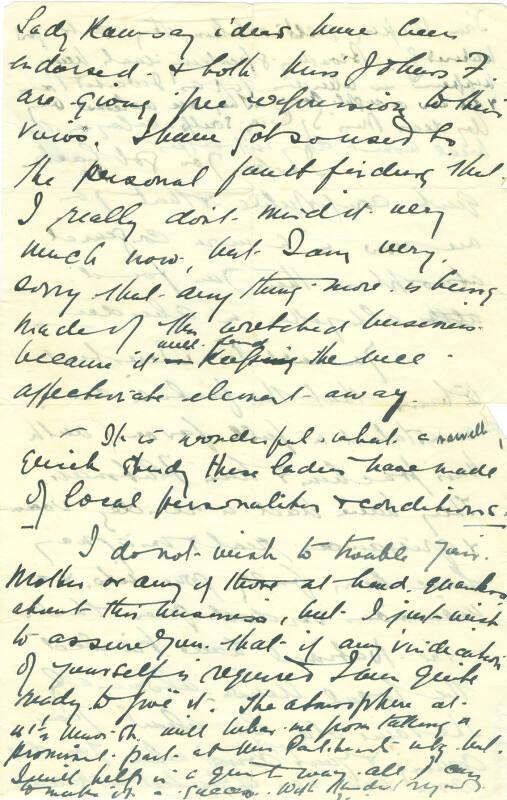 Lady Ramsay ideas have been
endorsed - & both Miss J & Miss F
are giving free expression to their
views. I have got so used to
the personal fault finding that
I really don't mind it very
much now, but I am very,
sorry that any thing more is being
made of this wretched business
because it will send the
affectionate element away.
It is wonderful what a
quick study these ladies have made
of local personalities & conditions.
I do not wish to trouble your
Mother or any of those at head quarters
about this business, but I just wish
to assure you that if any vindication
of yourself is required I am quite
ready to give it. The atmosphere at
will debar me from taking a
prominent part at but
I will help in a quiet way all I can
to make it a success. With kindest regards